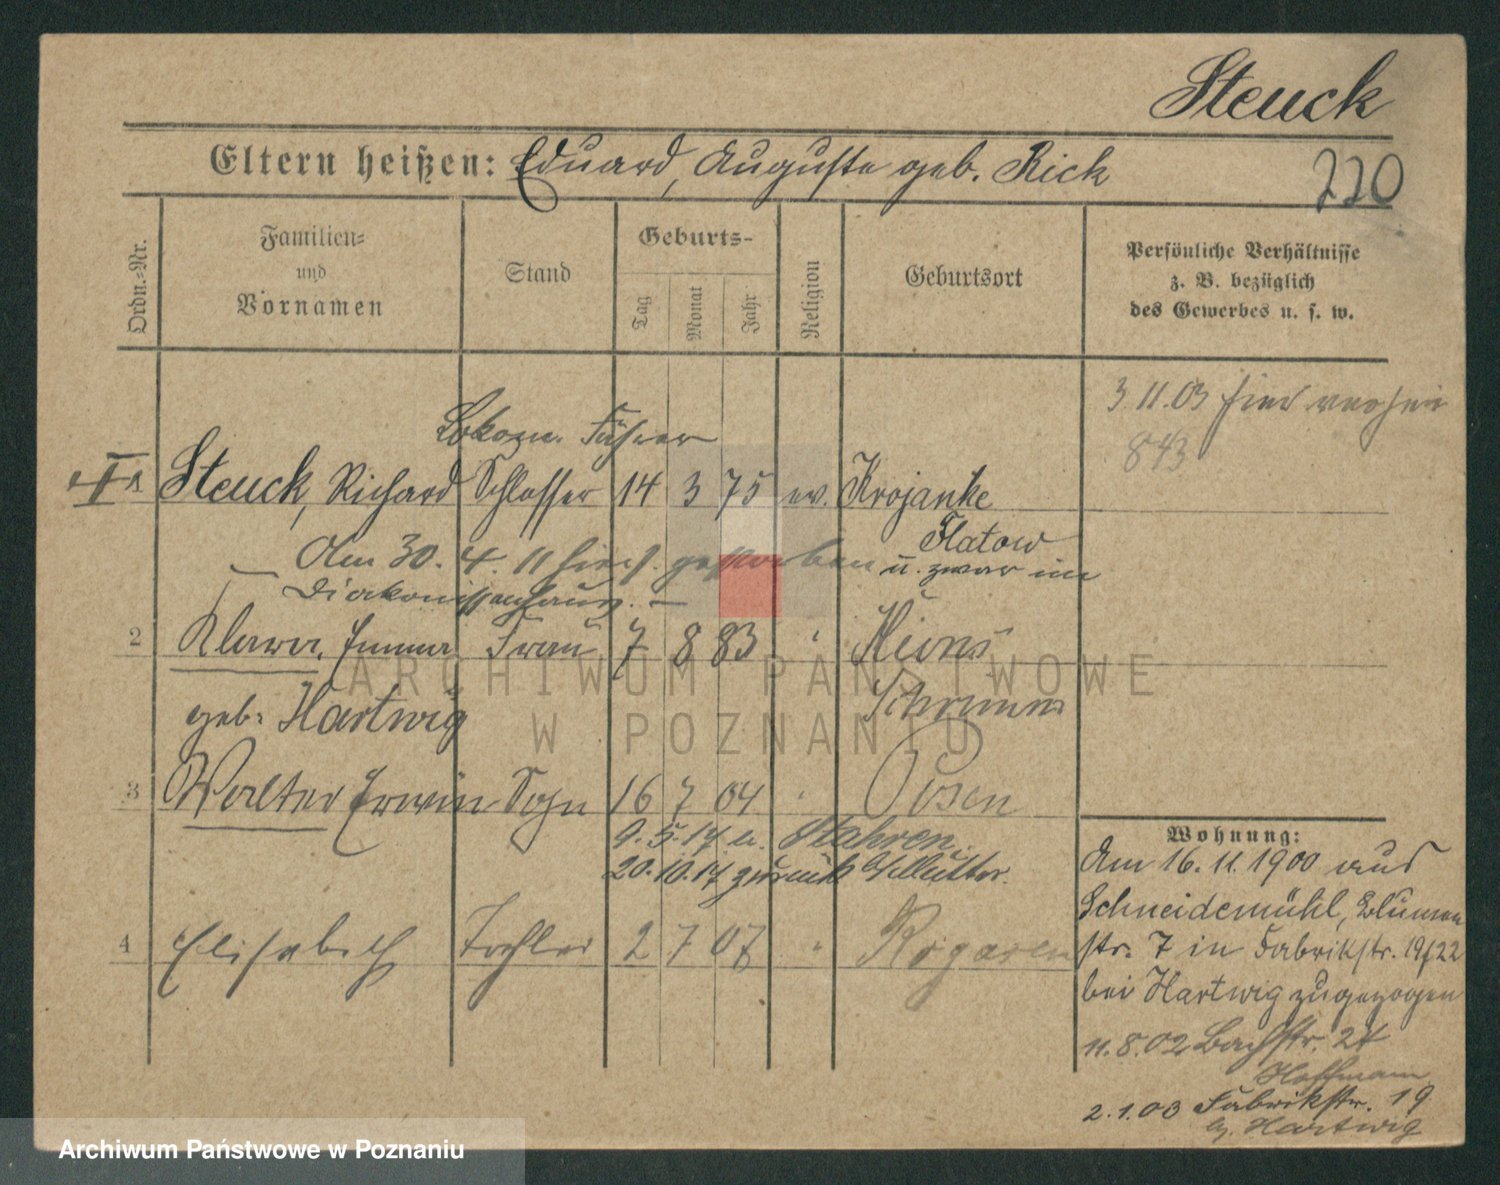 Steuck
Eltern heißen: Eduard, Auguste geb. Rick
220
Ordn.-Nr.
Familien-
und
Vornamen
Stand
Geburts-
Tag
Monat
Jahr
Religion
Geburtsort
Persönliche Verhältnisse
z. B. bezüglich
des Gewerbes u. s. w.
3.11.03 hier
843
Lokom. Führer
1 Steuck, Richard Schlosser 14 3 75 ev. Krojanke
Flatow
Am 30. 4. 11 hier gestorben u. zwar im
Diakonissenhaus. —
2 Klara, Emma Frau 7 8 83 "
geb. Hartwig Schrimm
3 Walter Erwin Sohn 16 7 04 " Posen
9.5.17 n.
20.10.17 zurück z. Mutter.
4 Elisabeth Tochter 2 7 07 " Rogasen
Wohnung:
Am 16.11.1900 aus
Schneidemühl, Blumen
str. 7 in Fabrikstr. 19/22
bei Hartwig zugezogen
11.8.02 Bachstr. 24
Hoffmann
2.1.03 Fabrikstr. 19
b. Hartwig
ARCHIWUM PAŃSTWOWE
W POZNANIU
Archiwum Państwowe w Poznaniu